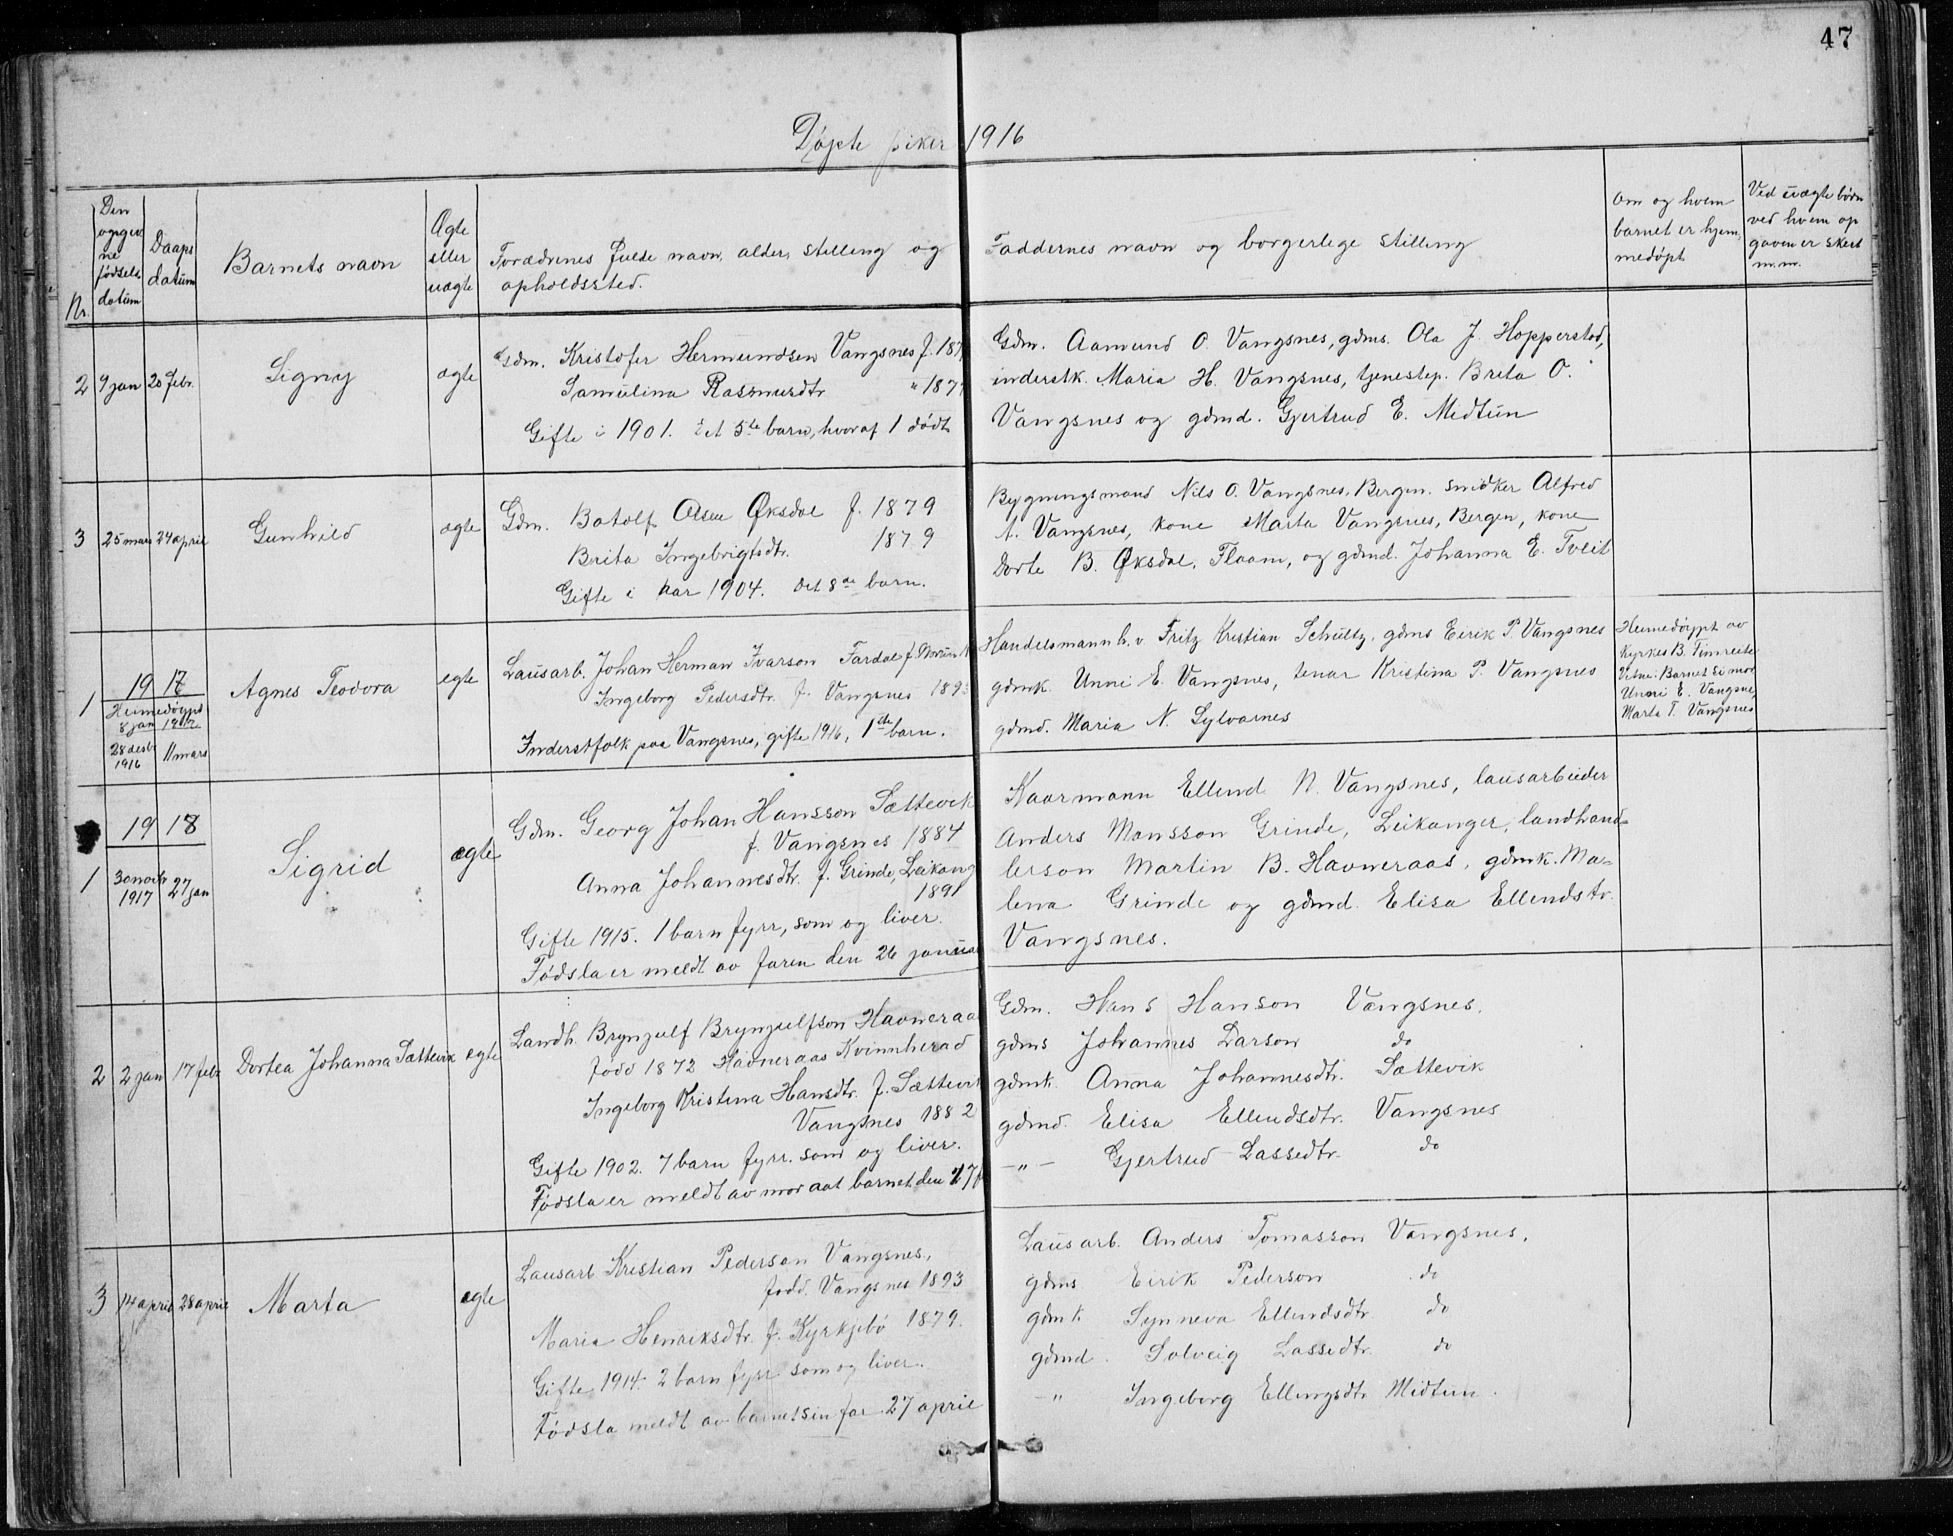 47
Døpte piker 1916
Nr.
Den
opgiv
ne
fødsels
datum
Daaps
datum
Barnets navn
Ægte
eller
uægte
Forædrenes fulde navn, alder, stilling og
opholdssted.
Faddernes navn og borgerlege stilling
om og hvem
barnet er hjem,
medøpt
Ved uægte børn
ved hvem op
gaven er skeet
m.m.
2 9 jan 20 febr. Signy ægte
Gdm. Kristofer Hermundsen Vangsnes f. 187
Samulina Rasmusdtr " 187
Gifte i 1901. Det 5te barn, hvoraf 1 dødt
Gdm. Aamund O. Vangsnes, gdms. Ola J. Hopperstad,
inderstk. Maria H. Vangsnes, tjenestep. Brita O.
Vangsnes og gdmd. Gjertrud E. Midtun
3 25 mars 24 april Gunhild ægte
Gdm. Botolf Olsen Øksdal f. 1879
Brita Ingebrigtsdtr. 1879
Gifte i aar 1904. Det 8de barn.
Bygningsmand Nils O. Vangsnes, Bergen. snidker Alfred
A. Vangsnes, kone Marta Vangsnes, Bergen, kone
Dorte B. Øksdal, Flaam, og gdmd. Johanna E. Tveit
1917
1 Heimedøypt
8 jan 1917
28 desbr
1916
11 mars
Agnes Teodora egte
Lausarb. Johan Herman Ivarson Fardal f.
Ingeborg Pedersdtr. f. Vangsnes 1893
Inderstfolk paa Vangsnes, gifte 1916, 1ste barn.
Handelsmann h. v. Fritz Kristian Schultz, gdms Eirik P. Vangsnes
gdmk. Unni E. Vangsnes, tenar Kristina P. Vangsnes
gdmd. Maria N. Sylvarnes
Heimedøypt av
Kyrkes. B. Finreite
Vitne: Barnet si mor
Unni E. Vangsnes
Marta T. Vangsnes
1918
1 30 novbr
1917
27 jan
Sigrid ægte
Gdm. Georg Johan Hansson Sættevik
f. Vangsnes 1884
Anna Johannesdtr. f. Grinde, Leikang
1891
Gifte 1915. 1 barn fyrr, som og liver.
Fødsla er meldt av faren den 26 januar
Kaarmann Ellend N. Vangsnes, lausarbeider
Anders Monsson Grinde, Leikanger, landhand-
lerson Martin B. Havneraas, gdmk. Ma-
lena Grinde og gdmd. Elisa Ellendsdtr.
Vangsnes.
2 2 jan 17 febr Dortea Johanna Sættevik egte
Landh. Brynjulf Brynjulfson Havneraa
fødd 1872 Havneraas Kvinnherad
Ingeborg Kristina Hansdtr. f. Sættevik
Vangsnes 1882
Gifte 1902. 7 barn fyrr. som og liver.
Fødsla er meldt av mor aat barnet den 17 f
Gdm. Hans Hanson Vangsnes.
gdms Johannes Larson do
gdmk. Anna Johannesdtr. Sættevik
gdmd. Elisa Ellendsdtr. Vangsnes
—"— Gjertrud Lassedtr. do
3 14 april 28 april Marta egte
Lausarb Kristian Pederson Vangsnes,
fødd. Vangsnes 1893
Maria Henriksdtr. f. Kyrkjebø 1879.
Gifte 1914. 2 barn fyrr som og liver.
Fødsla meldt av barnet sin far 27 april
Lausarb. Anders Tomasson Vangsnes.
gdms Eirik Pederson do
gdmk Synneva Ellendsdtr do
gdmd. Solveig Lassedtr. do
" Ingeborg Ellingsdtr Midtun.